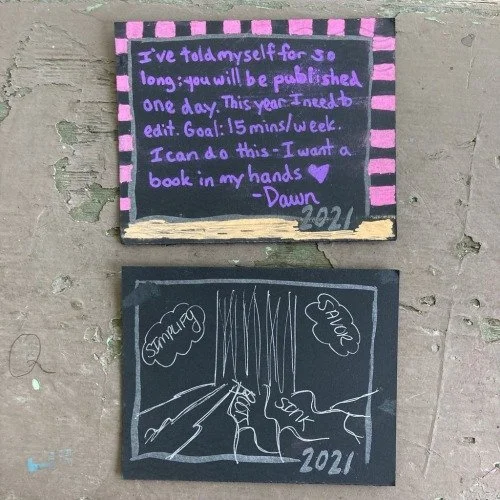 I've told myself for so
long: you will be published
one day. This year I need to
edit. Goal: 15 mins/week.
I can do this - I want a
book in my hands ♥
- Dawn
2021
SIMPLIFY
SAVOR
SINK
2021